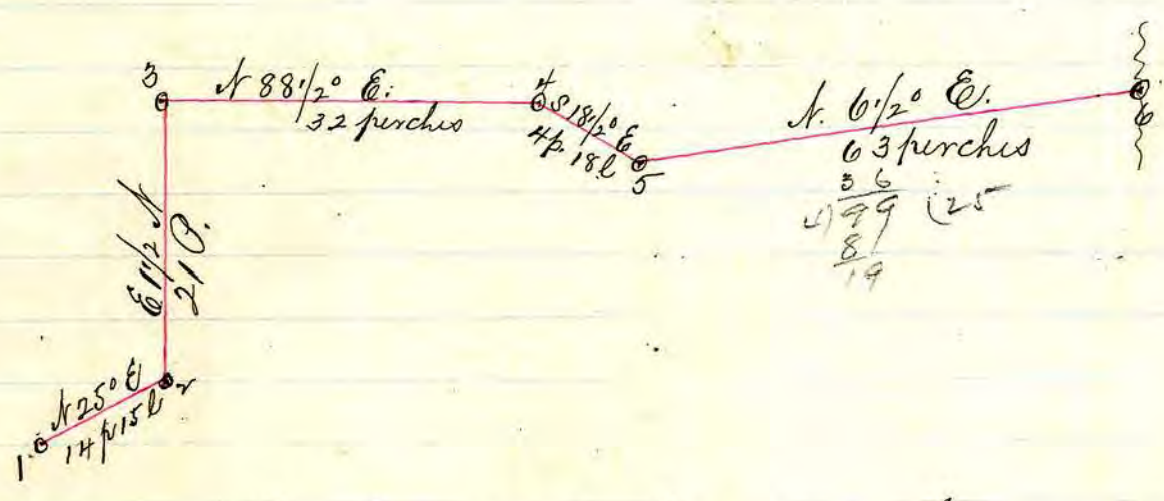 3
N 88 1/2° E:
32 perches
4
S 18 1/2° E
4p. 18 l
5
N. 6 1/2° E.
63 perches
36
4) 99 (25
8
19
6
E 1 1/2 N
21 P.
N 25° E
14 p 15 l
2
1